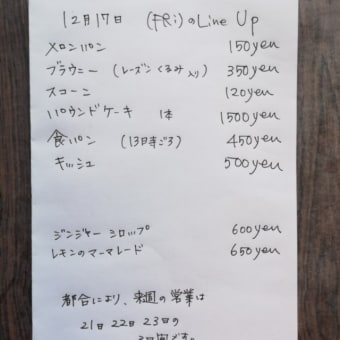 12月17日 (FRi)のLine Up
メロンパン 150yen
ブラウニー (レーズンくるみ入り) 350yen
スコーン 120yen
パウンドケーキ 1本 1500yen
食パン (13日ごろ) 450yen
キッシュ 500yen
ジンジャーシロップ 600yen
レモンのマーマレード 650yen
都合により、来週の営業は
21日 22日 23日の
3日間です。